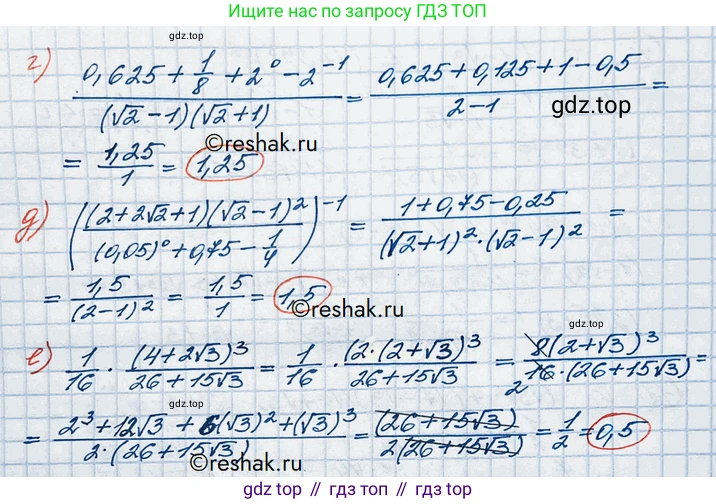 Ищите нас по запросу ГДЗ ТОП
gdz.top
г) (0,625 + 1/8 + 2^0 − 2^−1) / ((√2 − 1)(√2 + 1)) = (0,625 + 0,125 + 1 − 0,5) / (2 − 1) =
gdz.top
©reshak.ru
= 1,25/1 = 1,25
д) (((2 + 2√2 + 1)(√2 − 1)^2) / ((0,05)^0 + 0,75 − 1/4))^−1 = (1 + 0,75 − 0,25) / ((√2 + 1)^2 · (√2 − 1)^2) =
= 1,5/(2 − 1)^2 = 1,5/1 = 1,5
©reshak.ru
gdz.top
е) 1/16 · (4 + 2√3)^3 / (26 + 15√3) = 1/16 · (2·(2 + √3)^3) / (26 + 15√3) = 8(2 + √3)^3 / (16·(26 + 15√3)) =
2
gdz.top
= (2^3 + 12√3 + 6(√3)^2 + (√3)^3) / (2·(26 + 15√3)) = (26 + 15√3) / (2(26 + 15√3)) = 1/2 = 0,5
©reshak.ru
gdz.top
gdz top // гдз топ // gdz.top